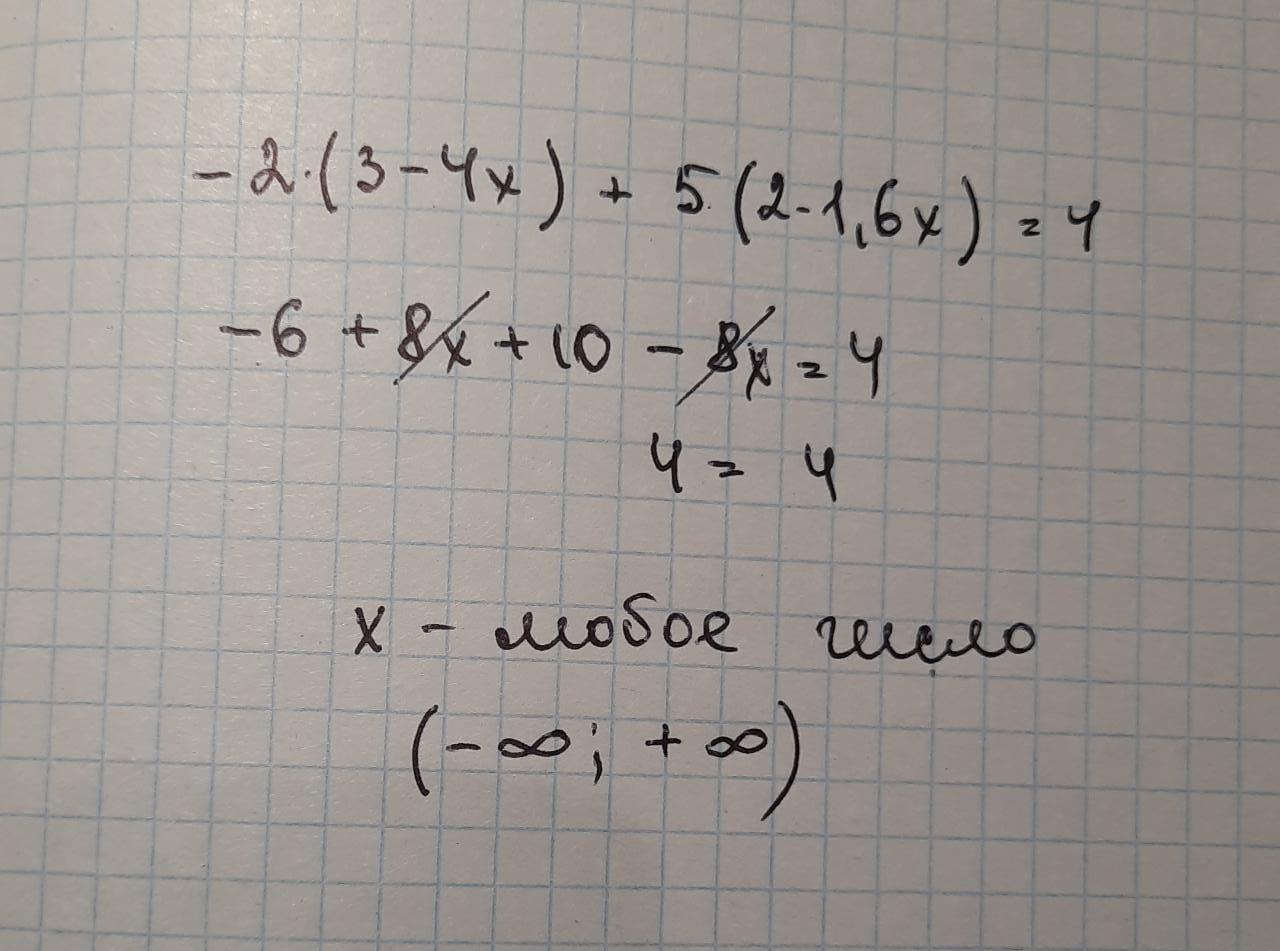 -2·(3-4x) + 5·(2-1,6x) = 4
-6 + 8x + 10 - 8x = 4
4 = 4
x - любое число
(-∞; +∞)